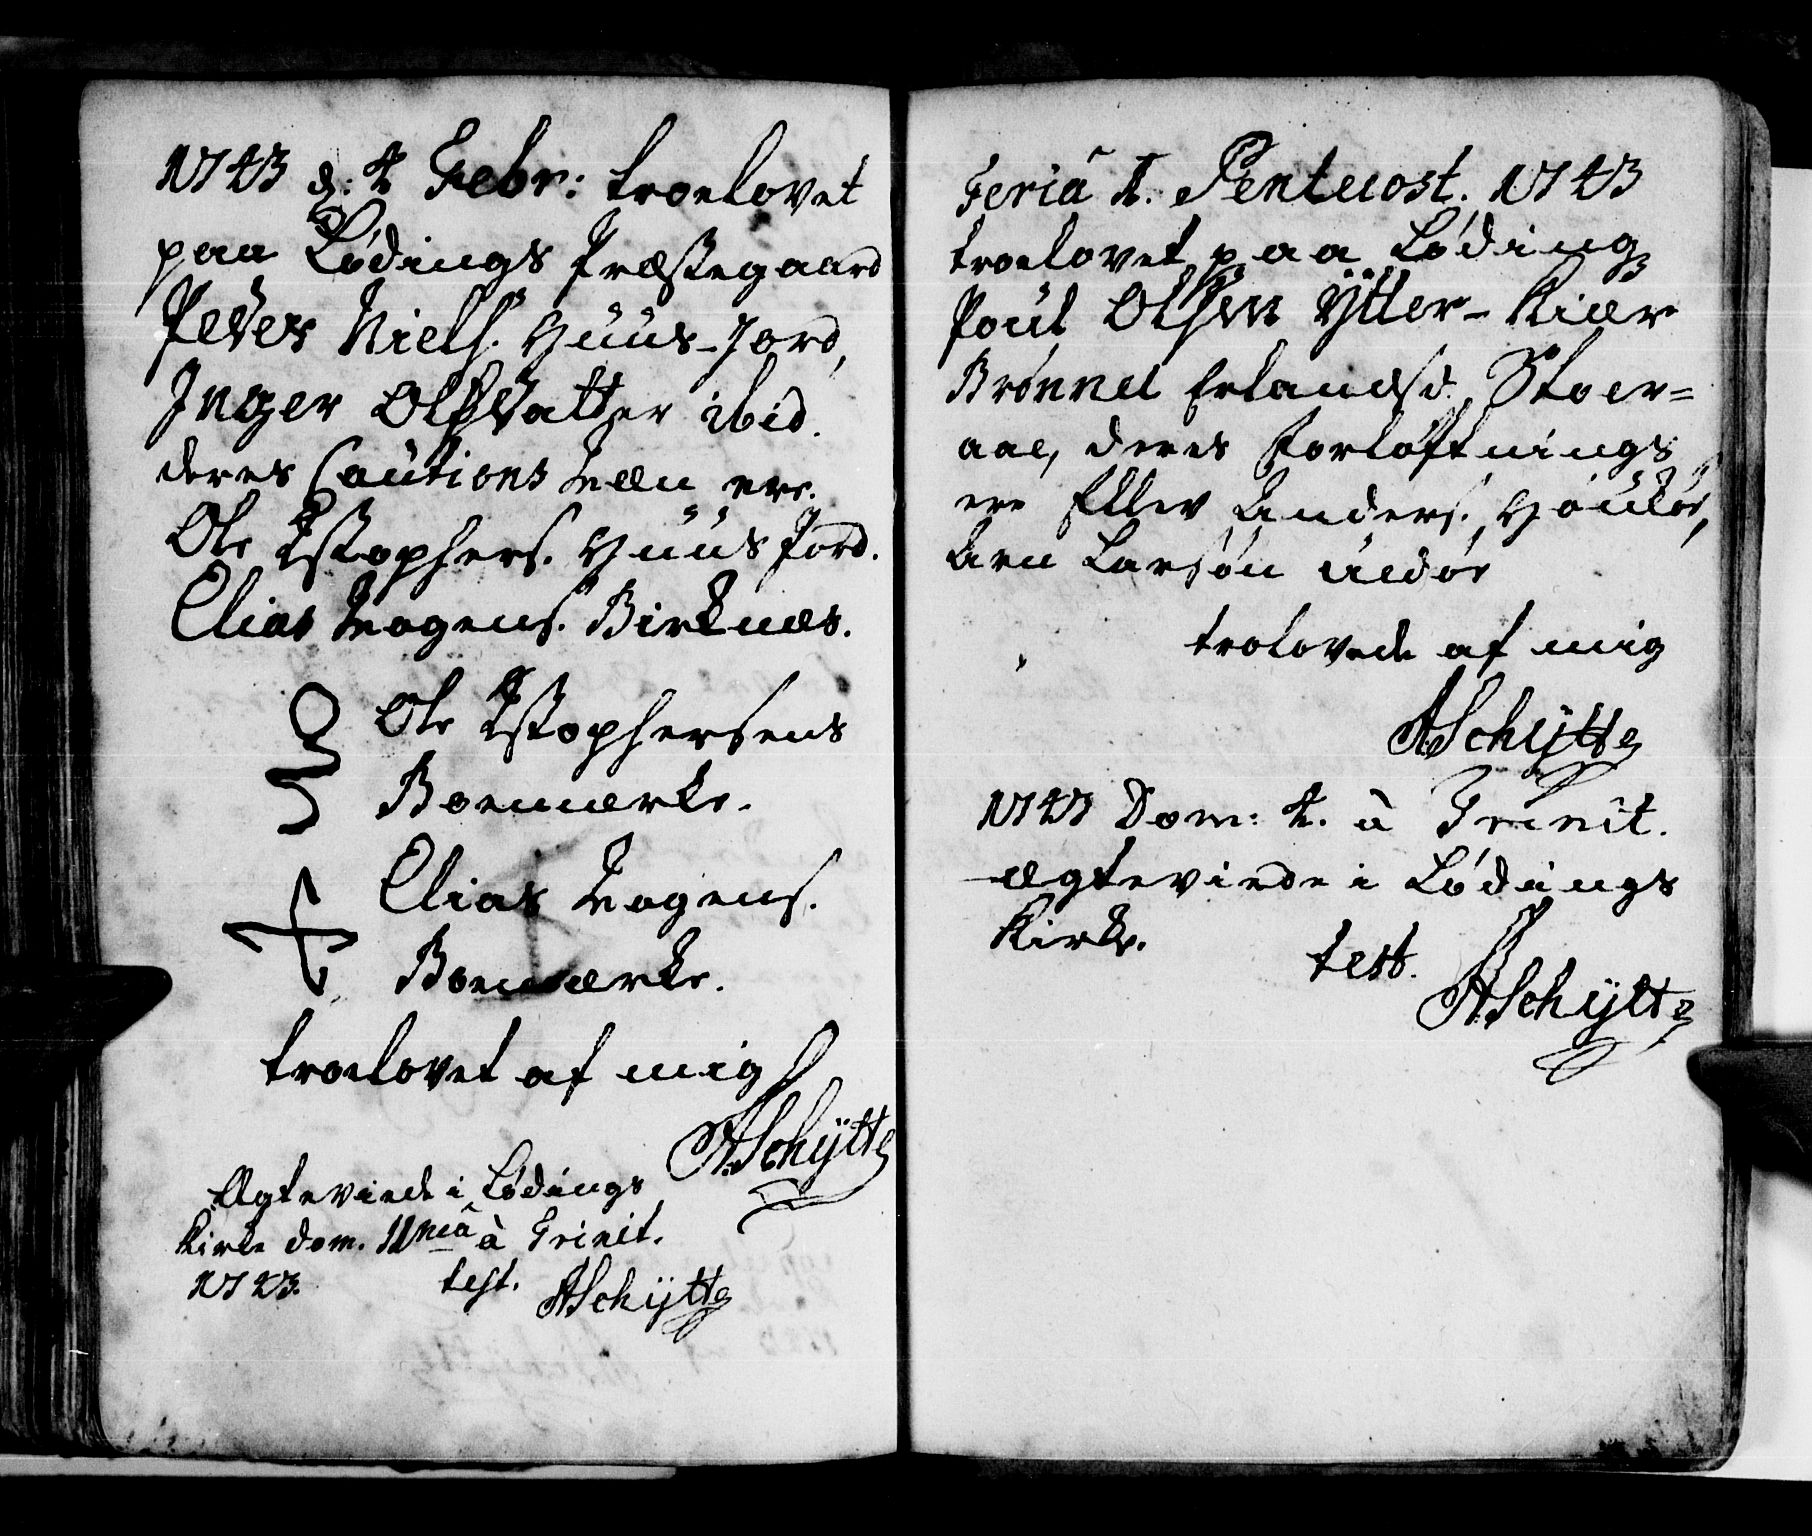 1743 d: 2 Febr: troelovet
paa Lødings Præstegaard
Peder Niels. Huus-Jord,
Inger Olsdatter ibid.
deres Cautions Mæn ere.
Ole Xstophers. Huus Jord.
Elias Mogens. Birknæs.
Ole Xstophersens
Boemærke.
Elias Mogens.
Boemærke.
troelovet af mig
ASchÿtte
Ægteviede i Lødings
Kirke dom. 11mâ à Trinit.
1743. test. ASchÿtte
Feriâ 2. Pentecost. 1743
troelovet paa Løding
Poul Olsen Ytter-Kiær
Brønnel Erlandsd. Stoer=
aae, deres Forløftnings
ere Ellev Anders.
Arn Larsøn
trolovede af mig
ASchÿtte
1743 Dom: 2. à Trinit.
ægteviede i Lødings
Kirke. test.
ASchÿtte